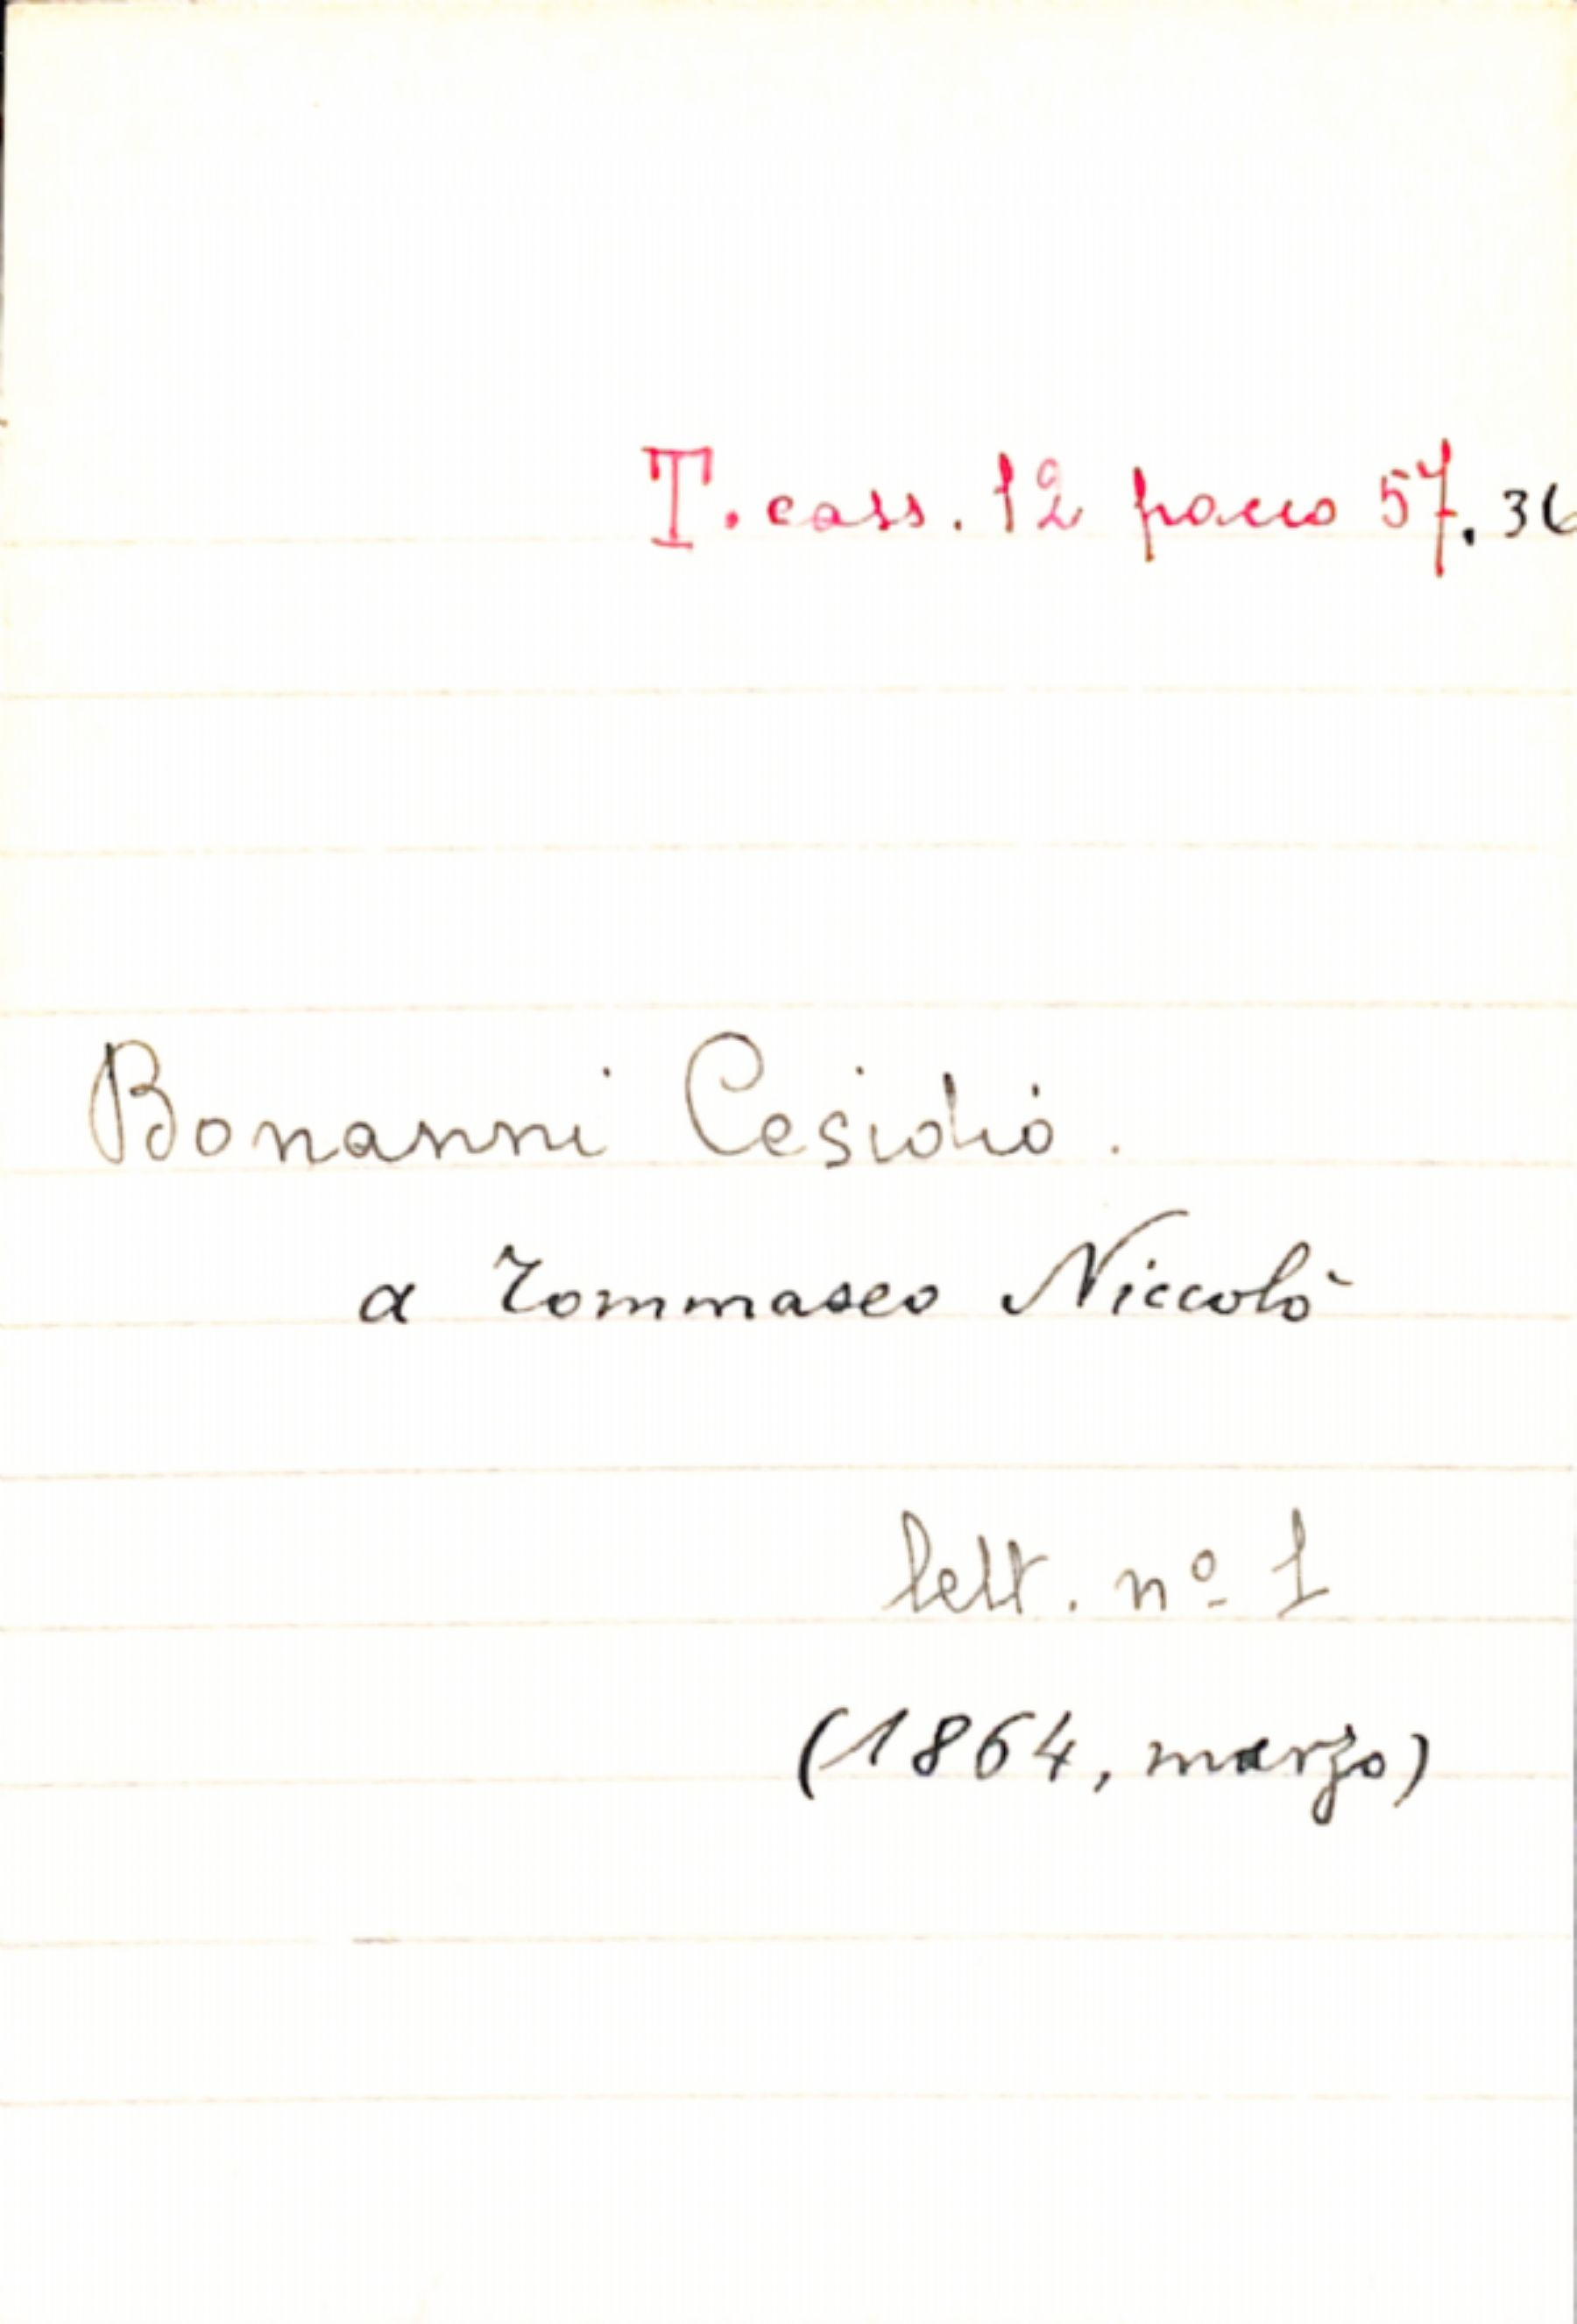 T. cass. 12 pacco 57. 36
Bonanni Cesidio.
a Tommaseo Niccolò
lett. nº 1
(1864, marzo)